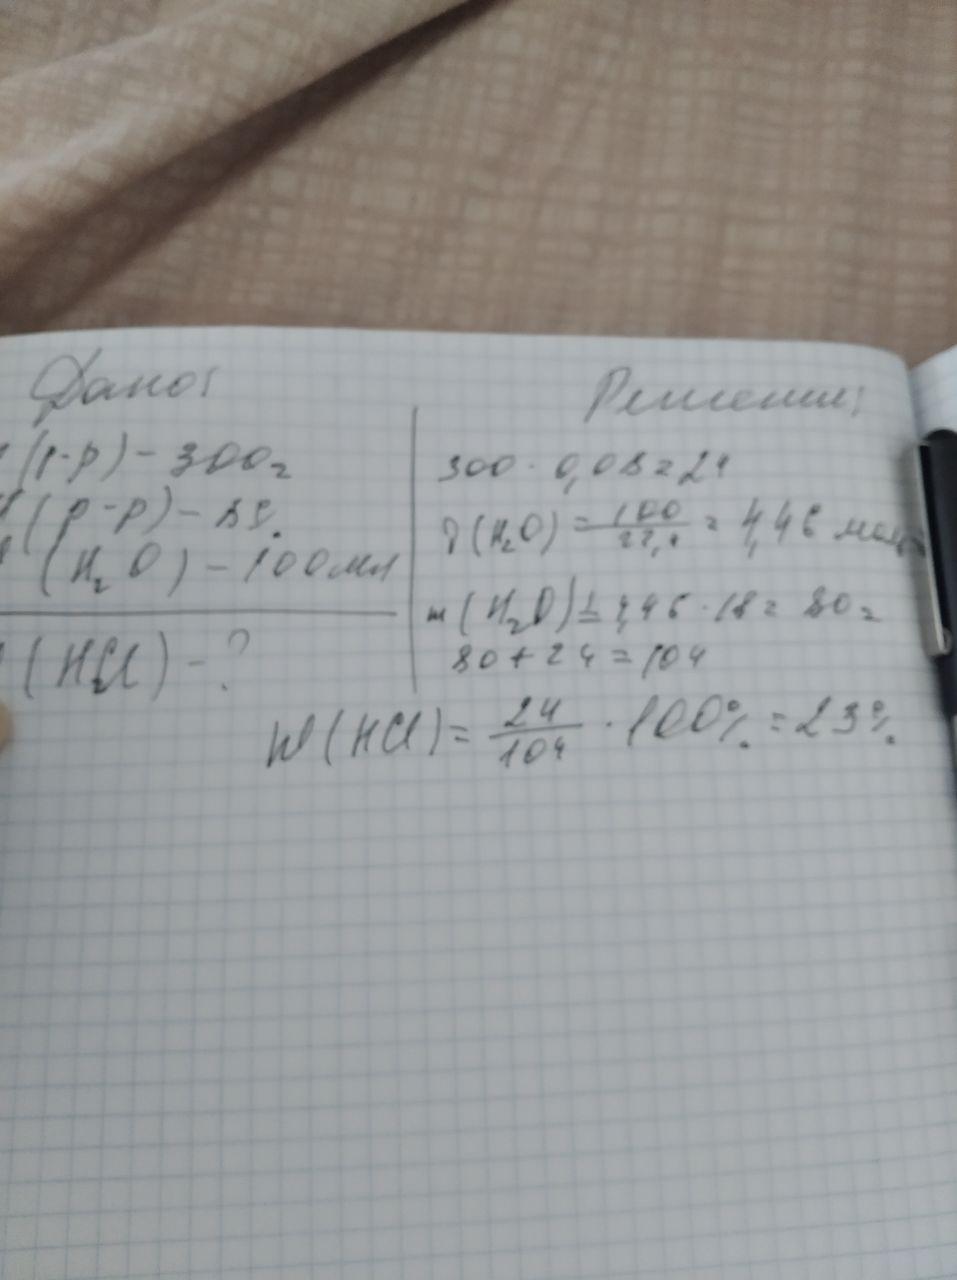 Дано:
(р-р) - 300г
(р-р) - 8%
(H₂O) - 100мл
(HCl) - ?
Решение:
300 · 0,08 = 24
(H₂O) = 100/22,4 = 4,46 моль
m (H₂O) = 4,46 · 18 = 80г
80 + 24 = 104
W (HCl) = 24/104 · 100% = 23%